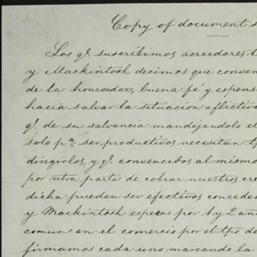 Copy of document
Los qe suscribimos acreedores
y Mackintosh decimos que conven
de la honradez, buena fe y espens
hacia salvar la situacion aflictiv
qe de su salvancia mandajandolo el
solo pa ser productivos necesitan
dingirlos, y qe convencidos al mismo
por ntra parte de cobrar nuestros cre
dicha pueden ser efectivos conceder
y Mackintosh esperas por 1 y 2 an
comun en el comercio por el tpo de
firmamos cada uno marcando la